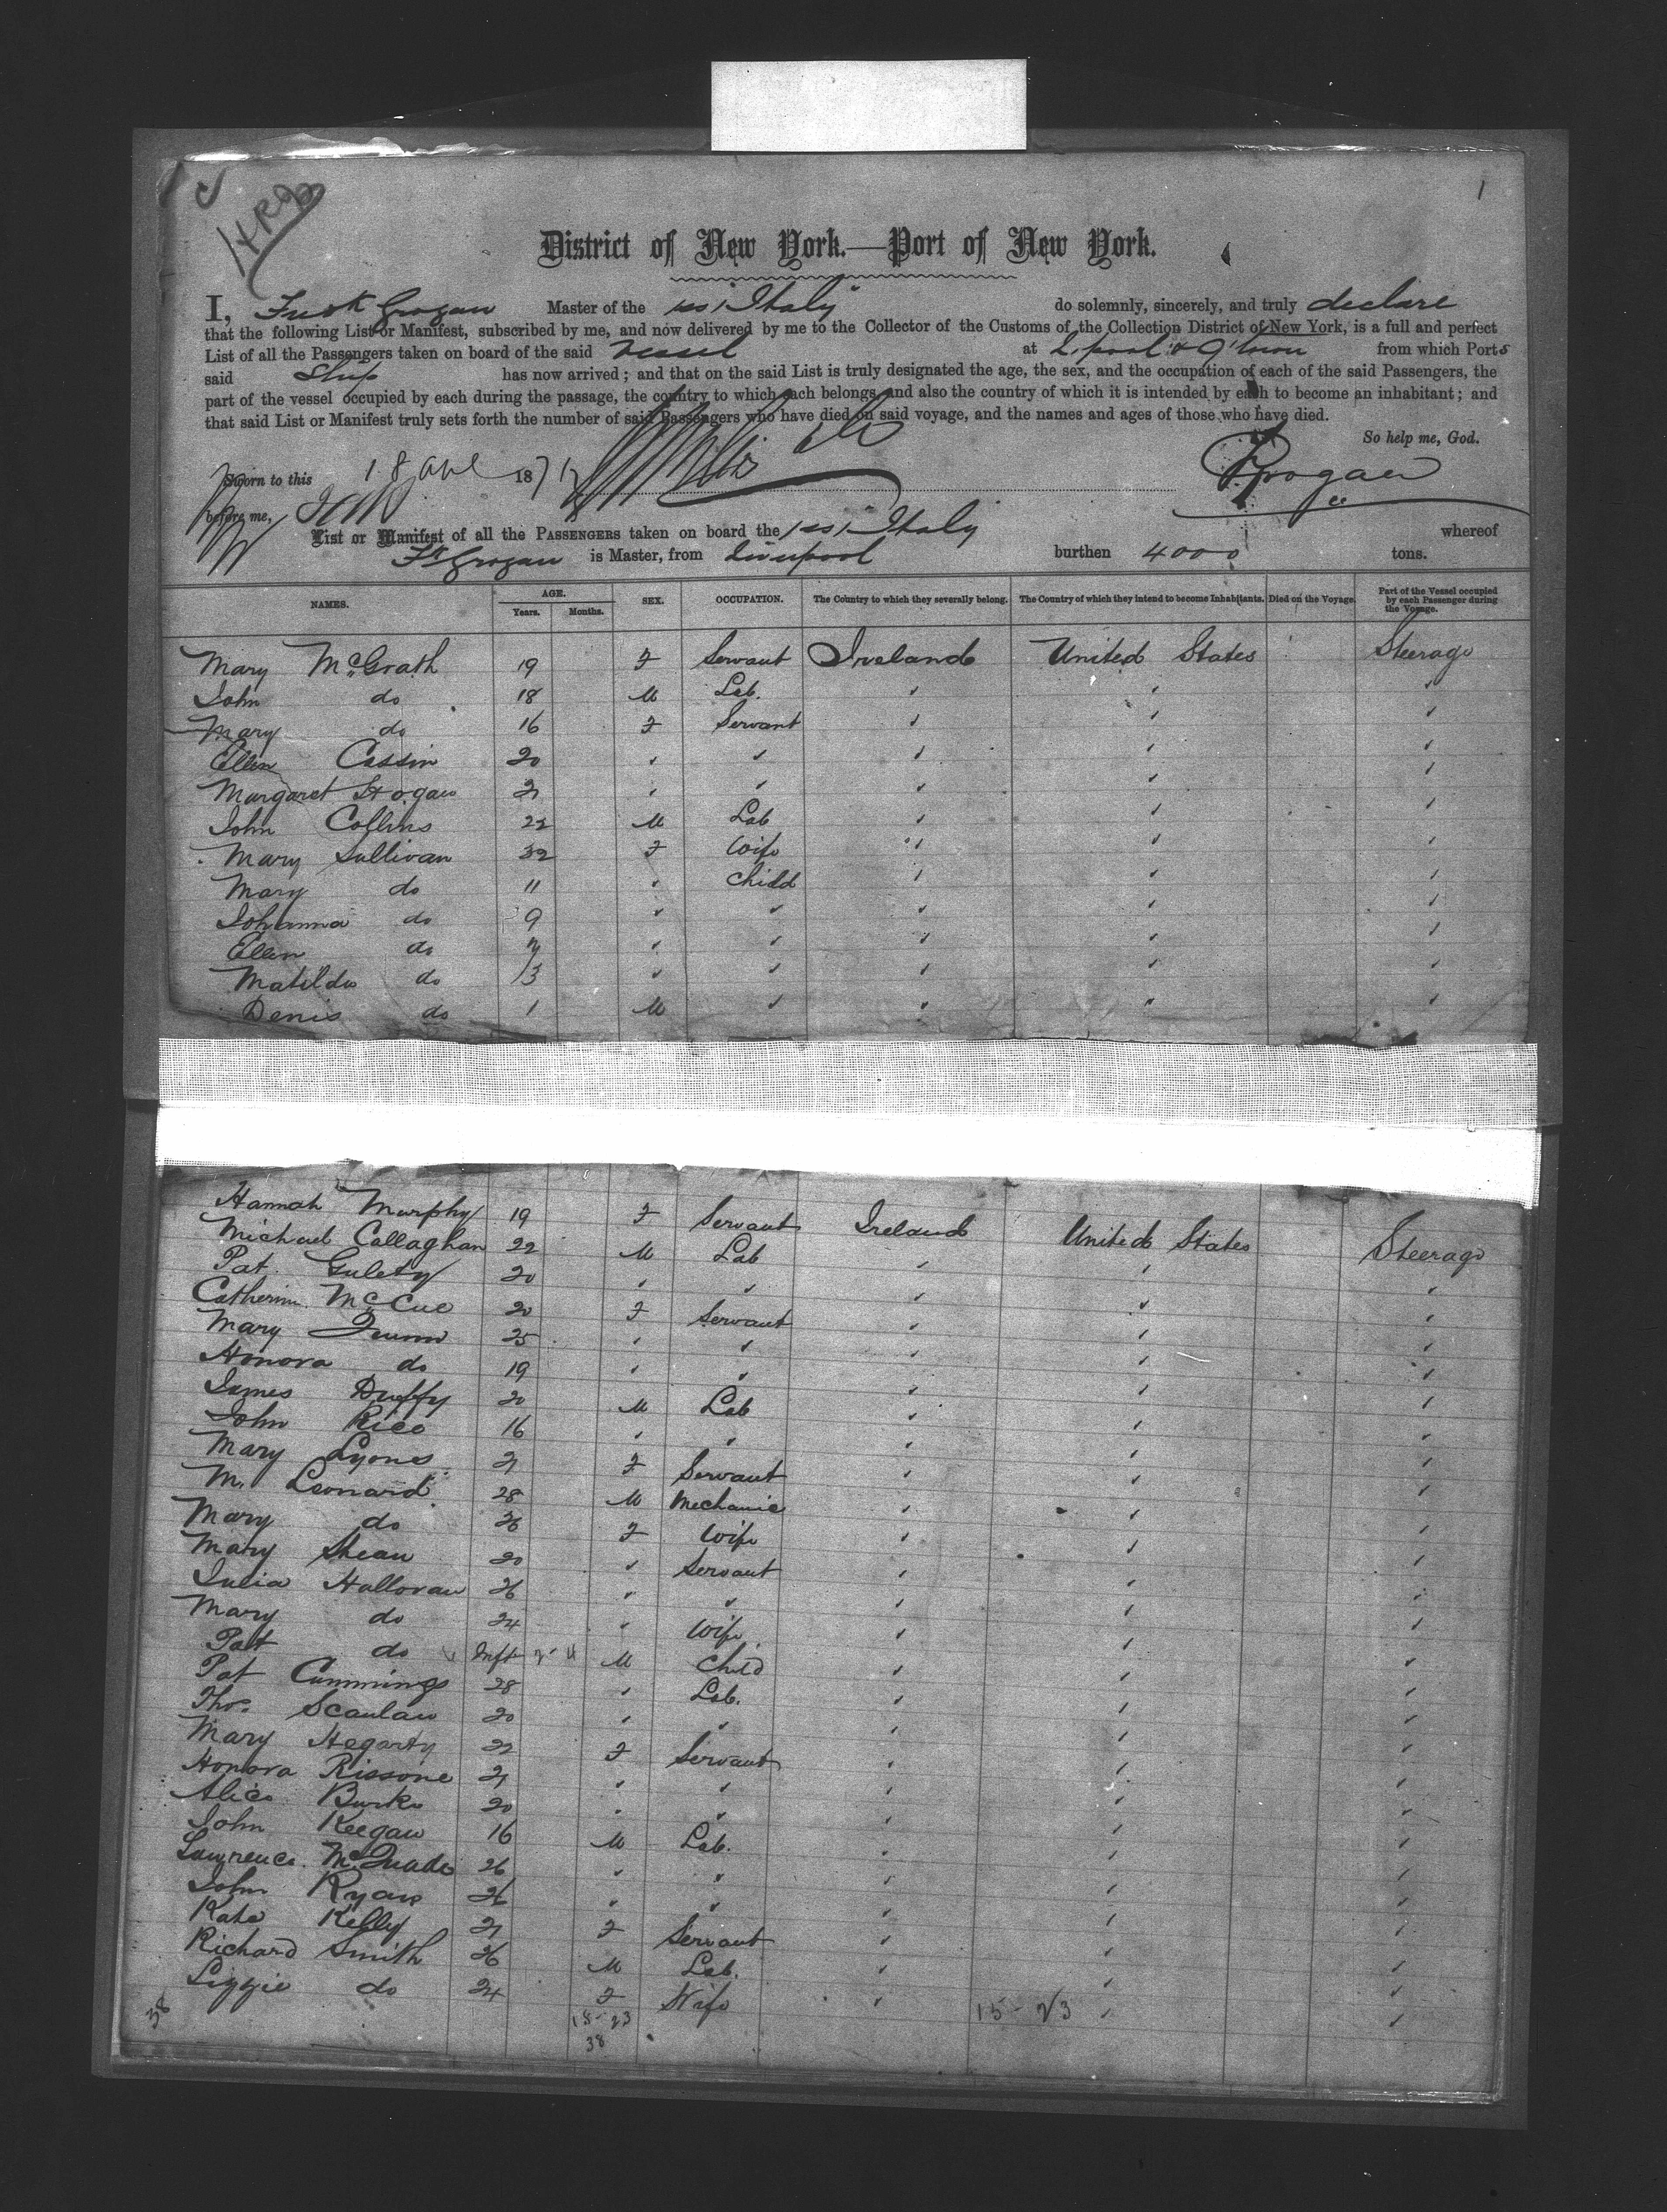 1
District of New York.—Port of New York.
I, Fredk Grogan Master of the "Italy" do solemnly, sincerely, and truly declare
that the following List or Manifest, subscribed by me, and now delivered by me to the Collector of the Customs of the Collection District of New York, is a full and perfect
List of all the Passengers taken on board of the said Vessel at L.pool & Q'town from which Ports
said Ship has now arrived; and that on the said List is truly designated the age, the sex, and the occupation of each of the said Passengers, the
part of the vessel occupied by each during the passage, the country to which each belongs, and also the country of which it is intended by each to become an inhabitant; and
that said List or Manifest truly sets forth the number of said Passengers who have died on said voyage, and the names and ages of those who have died.
So help me, God.
Sworn to this 18 1871 FGrogan
before me,
List or Manifest of all the PASSENGERS taken on board the Italy whereof
F Grogan is Master, from Liverpool burthen 4000 tons.
NAMES. AGE. Years. Months. SEX. OCCUPATION. The Country to which they severally belong. The Country of which they intend to become Inhabitants. Died on the Voyage. Part of the Vessel occupied by each Passenger during the Voyage.
Mary McGrath 19 F Servant Ireland United States Steerage
John do 18 M Lab. " " "
Mary do 16 F Servant " " "
Ellen Cassin 20 " " " " "
Margaret Hogan 21 " " " " "
John Collins 22 M Lab " " "
Mary Sullivan 32 F Wife " " "
Mary do 11 " Child " " "
Johanna do 9 " " " " "
Ellen do 7 " " " " "
Matilda do 3 " " " " "
Denis do 1 M " " " "
Hannah Murphy 19 F Servant Ireland United States Steerage
Michael Callaghan 22 M Lab " " "
Pat Gulety 20 " " " " "
Catherine McCue 20 F Servant " " "
Mary Quinn 25 " " " " "
Honora do 19 " " " " "
James Duffy 20 M Lab " " "
John Rice 16 " " " " "
Mary Lyons 21 F Servant " " "
M. Leonard 28 M Mechanic " " "
Mary do 26 F Wife " " "
Mary Shean 20 " Servant " " "
Julia Halloran 26 " " " " "
Mary do 24 " Wife " " "
Pat do Inft M Child " " "
Pat Cummings 28 " Lab. " " "
Thos. Scanlan 20 " " " " "
Mary Hegarty 22 F Servant " " "
Honora Rissone 21 " " " " "
Alice Burke 20 " " " " "
John Keegan 16 M Lab. " " "
Lawrence McQuade 26 " " " " "
John Ryan 26 " " " " "
Kate Kelly 21 F Servant " " "
Richard Smith 26 M Lab. " " "
Lizzie do 24 F Wife " " "
38 15-23 15-23
38